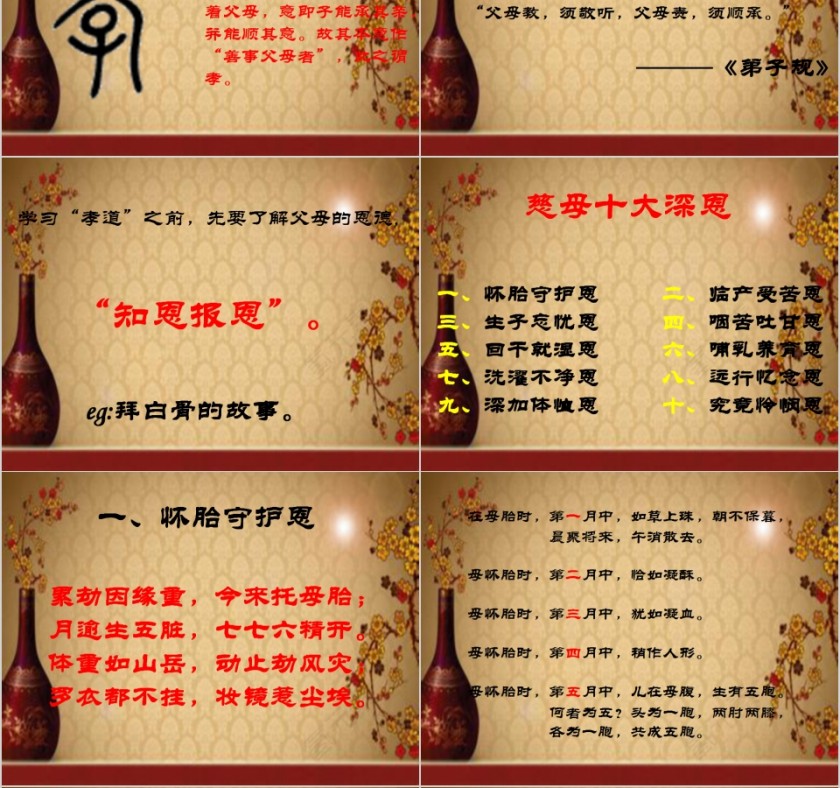 着父母，意即子能承其亲，
并能顺其意。故其本意作
“善事父母者”，敬之谓
孝。
“父母教，须敬听，父母责，须顺承。”
———《弟子规》
学习“孝道”之前，先要了解父母的恩德
“知恩报恩”。
eg:拜白骨的故事。
慈母十大深恩
一、怀胎守护恩
二、临产受苦恩
三、生子忘忧恩
四、咽苦吐甘恩
五、回干就湿恩
六、哺乳养育恩
七、洗濯不净恩
八、远行忆念恩
九、深加体恤恩
十、究竟怜悯恩
一、怀胎守护恩
累劫因缘重，今来托母胎；
月逾生五脏，七七六精开。
体重如山岳，动止劫风灾，
罗衣都不挂，妆镜惹尘埃。
在母胎时，第一月中，如草上珠，朝不保暮，
晨聚将来，午消散去。
母怀胎时，第二月中，恰如凝酥。
母怀胎时，第三月中，犹如凝血。
母怀胎时，第四月中，稍作人形。
母怀胎时，第五月中，儿在母腹，生有五胞。
何者为五？头为一胞，两肘两膝，
各为一胞，共成五胞。